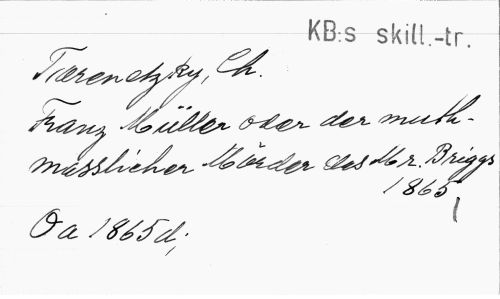 KB:s skill.-tr.
Tiarenetzky, Ch.
Franz Müller oder der muth-
masslicher Mörder des Mr. Briggs
1865
Oa 1865d;